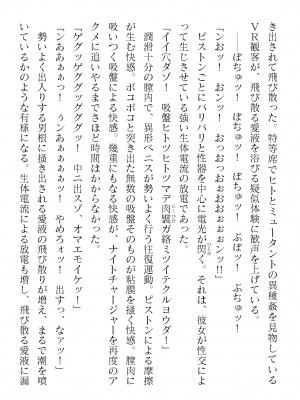 き出されて飛び散った。特等席でヒトとミュータントの異種姦を見物している
ＶＲ観客が、飛び散る愛液を浴びる疑似体験に歓声を上げている。
――ぼちゅッ！　ぼぢゅッ！　ぼちゅッ　ぶぼッ！　ぶぢゅッ！
「ンおッ！　おンッ！　おおっおぉおおぉぉンッ!!」
ピストンごとにバリバリと性器を中心に電光が閃く。それは、彼女が性交によ
って生じさせている強い生体電流の放電であった。
「イイ穴ダゾ！　吸盤ヒトツヒトツマデ肉襞ガ絡ミツイテクルヨウダ！」
潤滑十分の膣内で、異形ペニスが勢いよく行う往復運動。ピストンによる摩擦
が生む快感。ボコボコと突き出た無数の吸盤そのものが粘膜を掻く快感。膣肉に
吸いつく吸盤による快感。幾重にもなる快感が、ナイトチャージャーを再度のア
クメに追いやるまでさほど時間はかからなかった。
「ゲゲッゲゲゲゲゲッ！　中ニ出スゾ、オマエモイケッ！」
「ンああぁぁっ！　ぅンあぁぁぁッ！　やめろォッ！　出すっ、なアッ！」
勢いよく出入りする男根に掻き出される愛液の飛び散りが増え、まるで潮を噴
いているかのような有様になる。生体電流による放電も増し、飛び散る愛液に漏